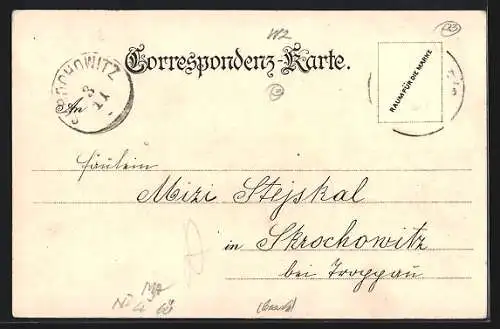 W2
Correspondenz-Karte.
SKROCHOWITZ
3
11
An
RAUM FÜR DIE MARKE
Fräulein
Mizi Stejskal
in Skrochowitz
bei Troppau